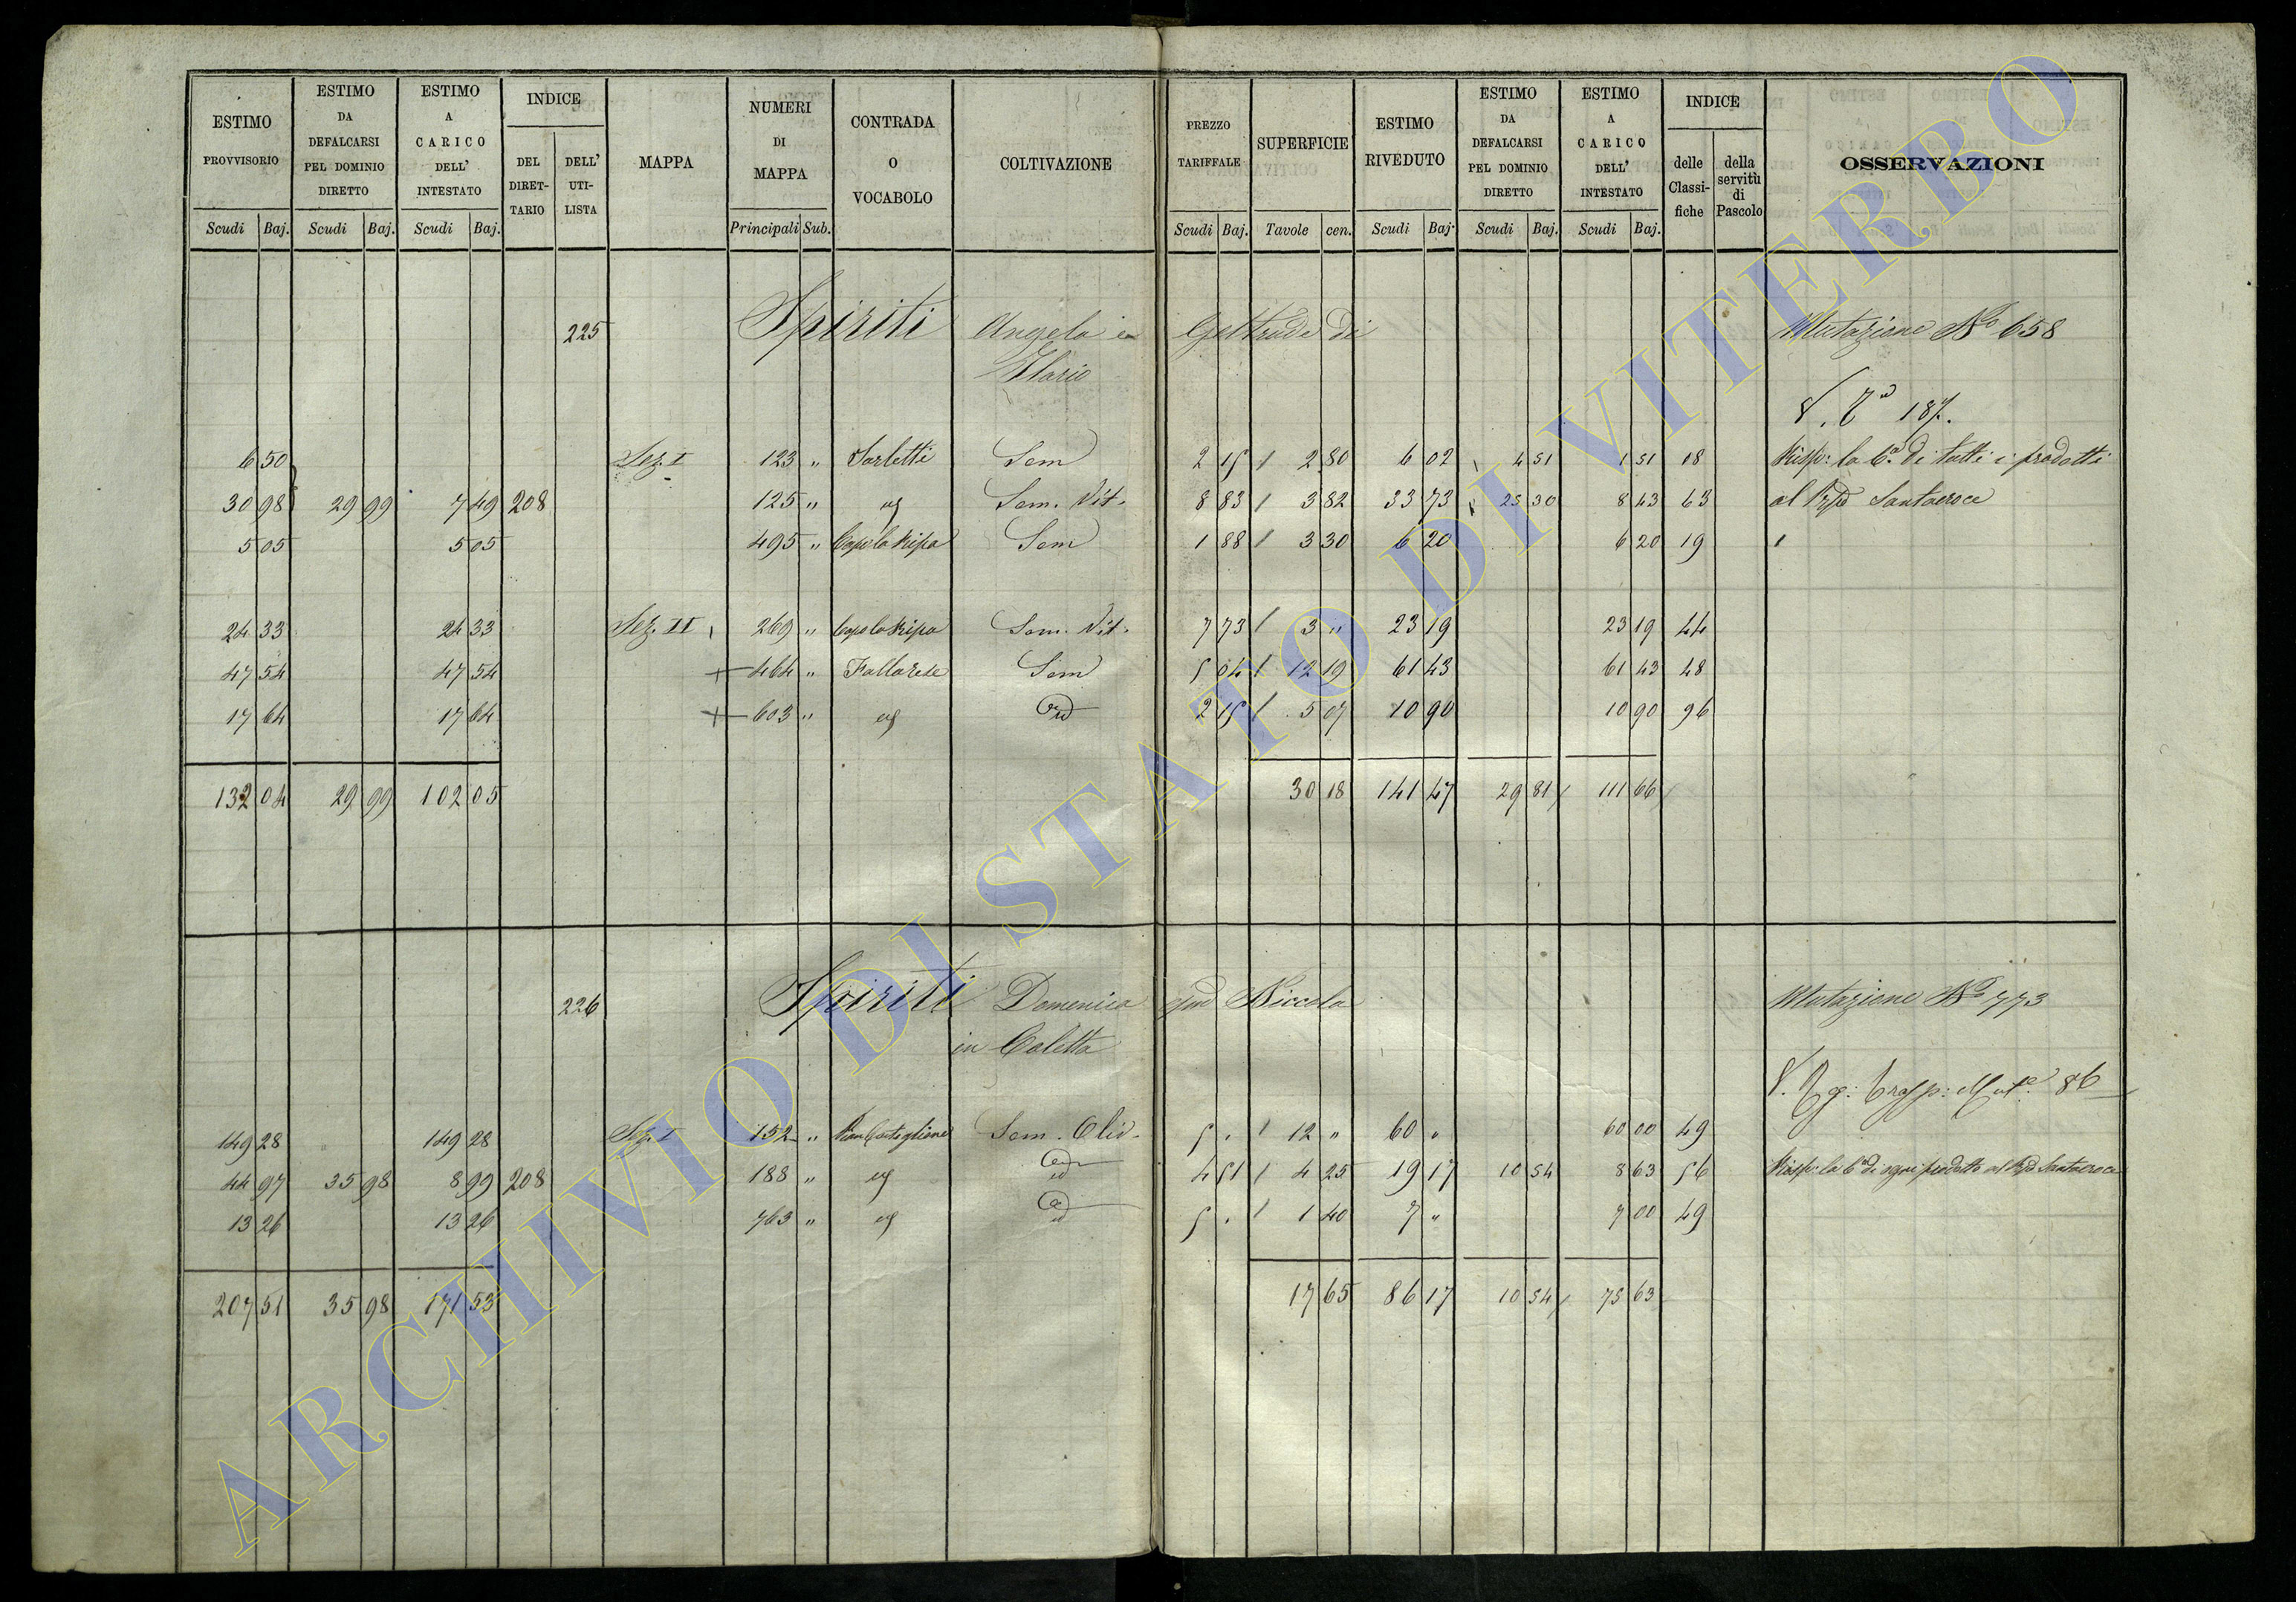 ESTIMO PROVVISORIO Scudi Baj. | ESTIMO DA DEFALCARSI PEL DOMINIO DIRETTO Scudi Baj. | ESTIMO A CARICO DELL' INTESTATO Scudi Baj. | INDICE DEL DIRET-TARIO | DELL' UTI-LISTA | MAPPA | NUMERI DI MAPPA Principali Sub. | CONTRADA O VOCABOLO | COLTIVAZIONE | PREZZO TARIFFALE Scudi Baj. | SUPERFICIE Tavole cen. | ESTIMO RIVEDUTO Scudi Baj. | ESTIMO DA DEFALCARSI PEL DOMINIO DIRETTO Scudi Baj. | ESTIMO A CARICO DELL' INTESTATO Scudi Baj. | INDICE delle Classi-fiche | della servitù di Pascolo | OSSERVAZIONI
225 Spiriti Angela in Geltrude di Mutazione No 658
Ilario
187.
6 50 Sez. I 123 " Sarletti Sem 2 15 2 80 6 02 4 51 1 51 18 Risp: la 6a di tutti i prodotti
30 98 29 99 7 49 208 125 " Sem. Vit. 8 83 3 82 33 73 25 30 8 43 63 al Santacroce
5 05 5 05 495 " Capo la Ripa Sem 1 88 3 30 6 20 6 20 19
24 33 24 33 Sez. II 269 " Capo la Ripa Sem. Vit. 7 73 3 " 23 19 23 19 44
47 54 47 54 + 464 " Fallarese Sem 5 04 12 19 61 43 61 43 48
17 64 17 64 + 603 " 2 15 5 07 10 90 10 90 96
132 04 29 99 102 05 30 18 141 47 29 81 111 66
226 Spiriti Domenica qm Niccola Mutazione No 773
in Coletta
86
149 28 149 28 Sez. I 152 " Pian Castiglione Sem. Oliv. 5 " 12 " 60 " 60 00 49
44 97 35 98 8 99 208 188 " 4 51 4 25 19 17 10 54 8 63 56 Risp: la 6a di ogni prodotto al Santacroce
13 26 13 26 763 " 5 " 1 40 7 " 7 00 49
207 51 35 98 171 53 17 65 86 17 10 54 75 63
ARCHIVIO DI STATO DI VITERBO